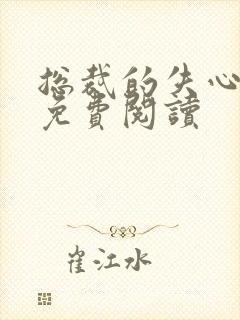 总裁的失心
免費閱讀
崔江水